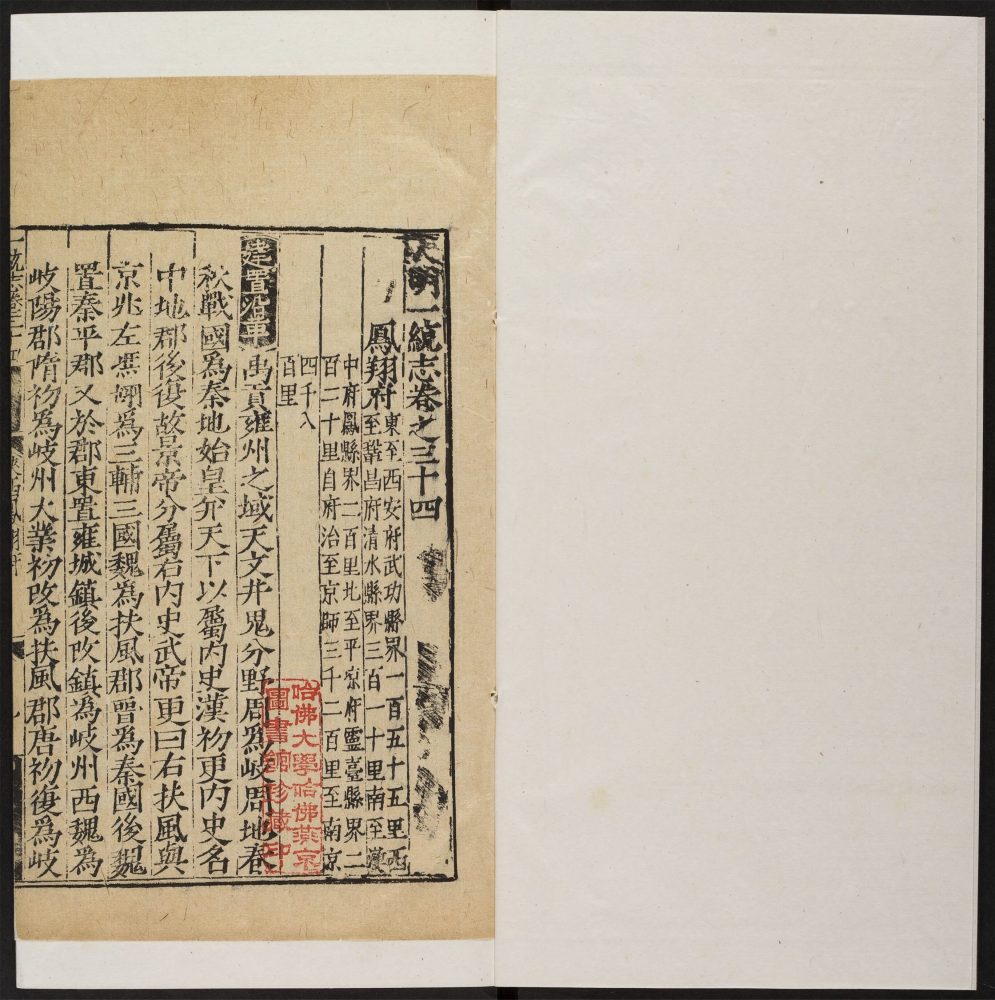 大明一統志卷之三十四
鳳翔府
東至西安府武功縣界一百五十五里西
至鞏昌府清水縣界三百一十里南至漢
中府鳳縣界二百里北至平凉府靈臺縣界二
百二十里自府治至京師三千二百里至南京
四千八
百里
建置沿革 禹貢雍州之域天文井鬼分野周爲岐周地春
秋戰國爲秦地始皇并天下以屬内史漢初更内史名
中地郡後復故景帝分屬右内史武帝更曰右扶風與
京兆左馮翊爲三輔三國魏爲扶風郡晉爲秦國後魏
置秦平郡又於郡東置雍城鎮後改鎮爲岐州西魏爲
岐陽郡隋初爲岐州大業初改爲扶風郡唐初復爲岐
一統志卷三十四
哈佛大學哈佛燕京
圖書館珍藏印